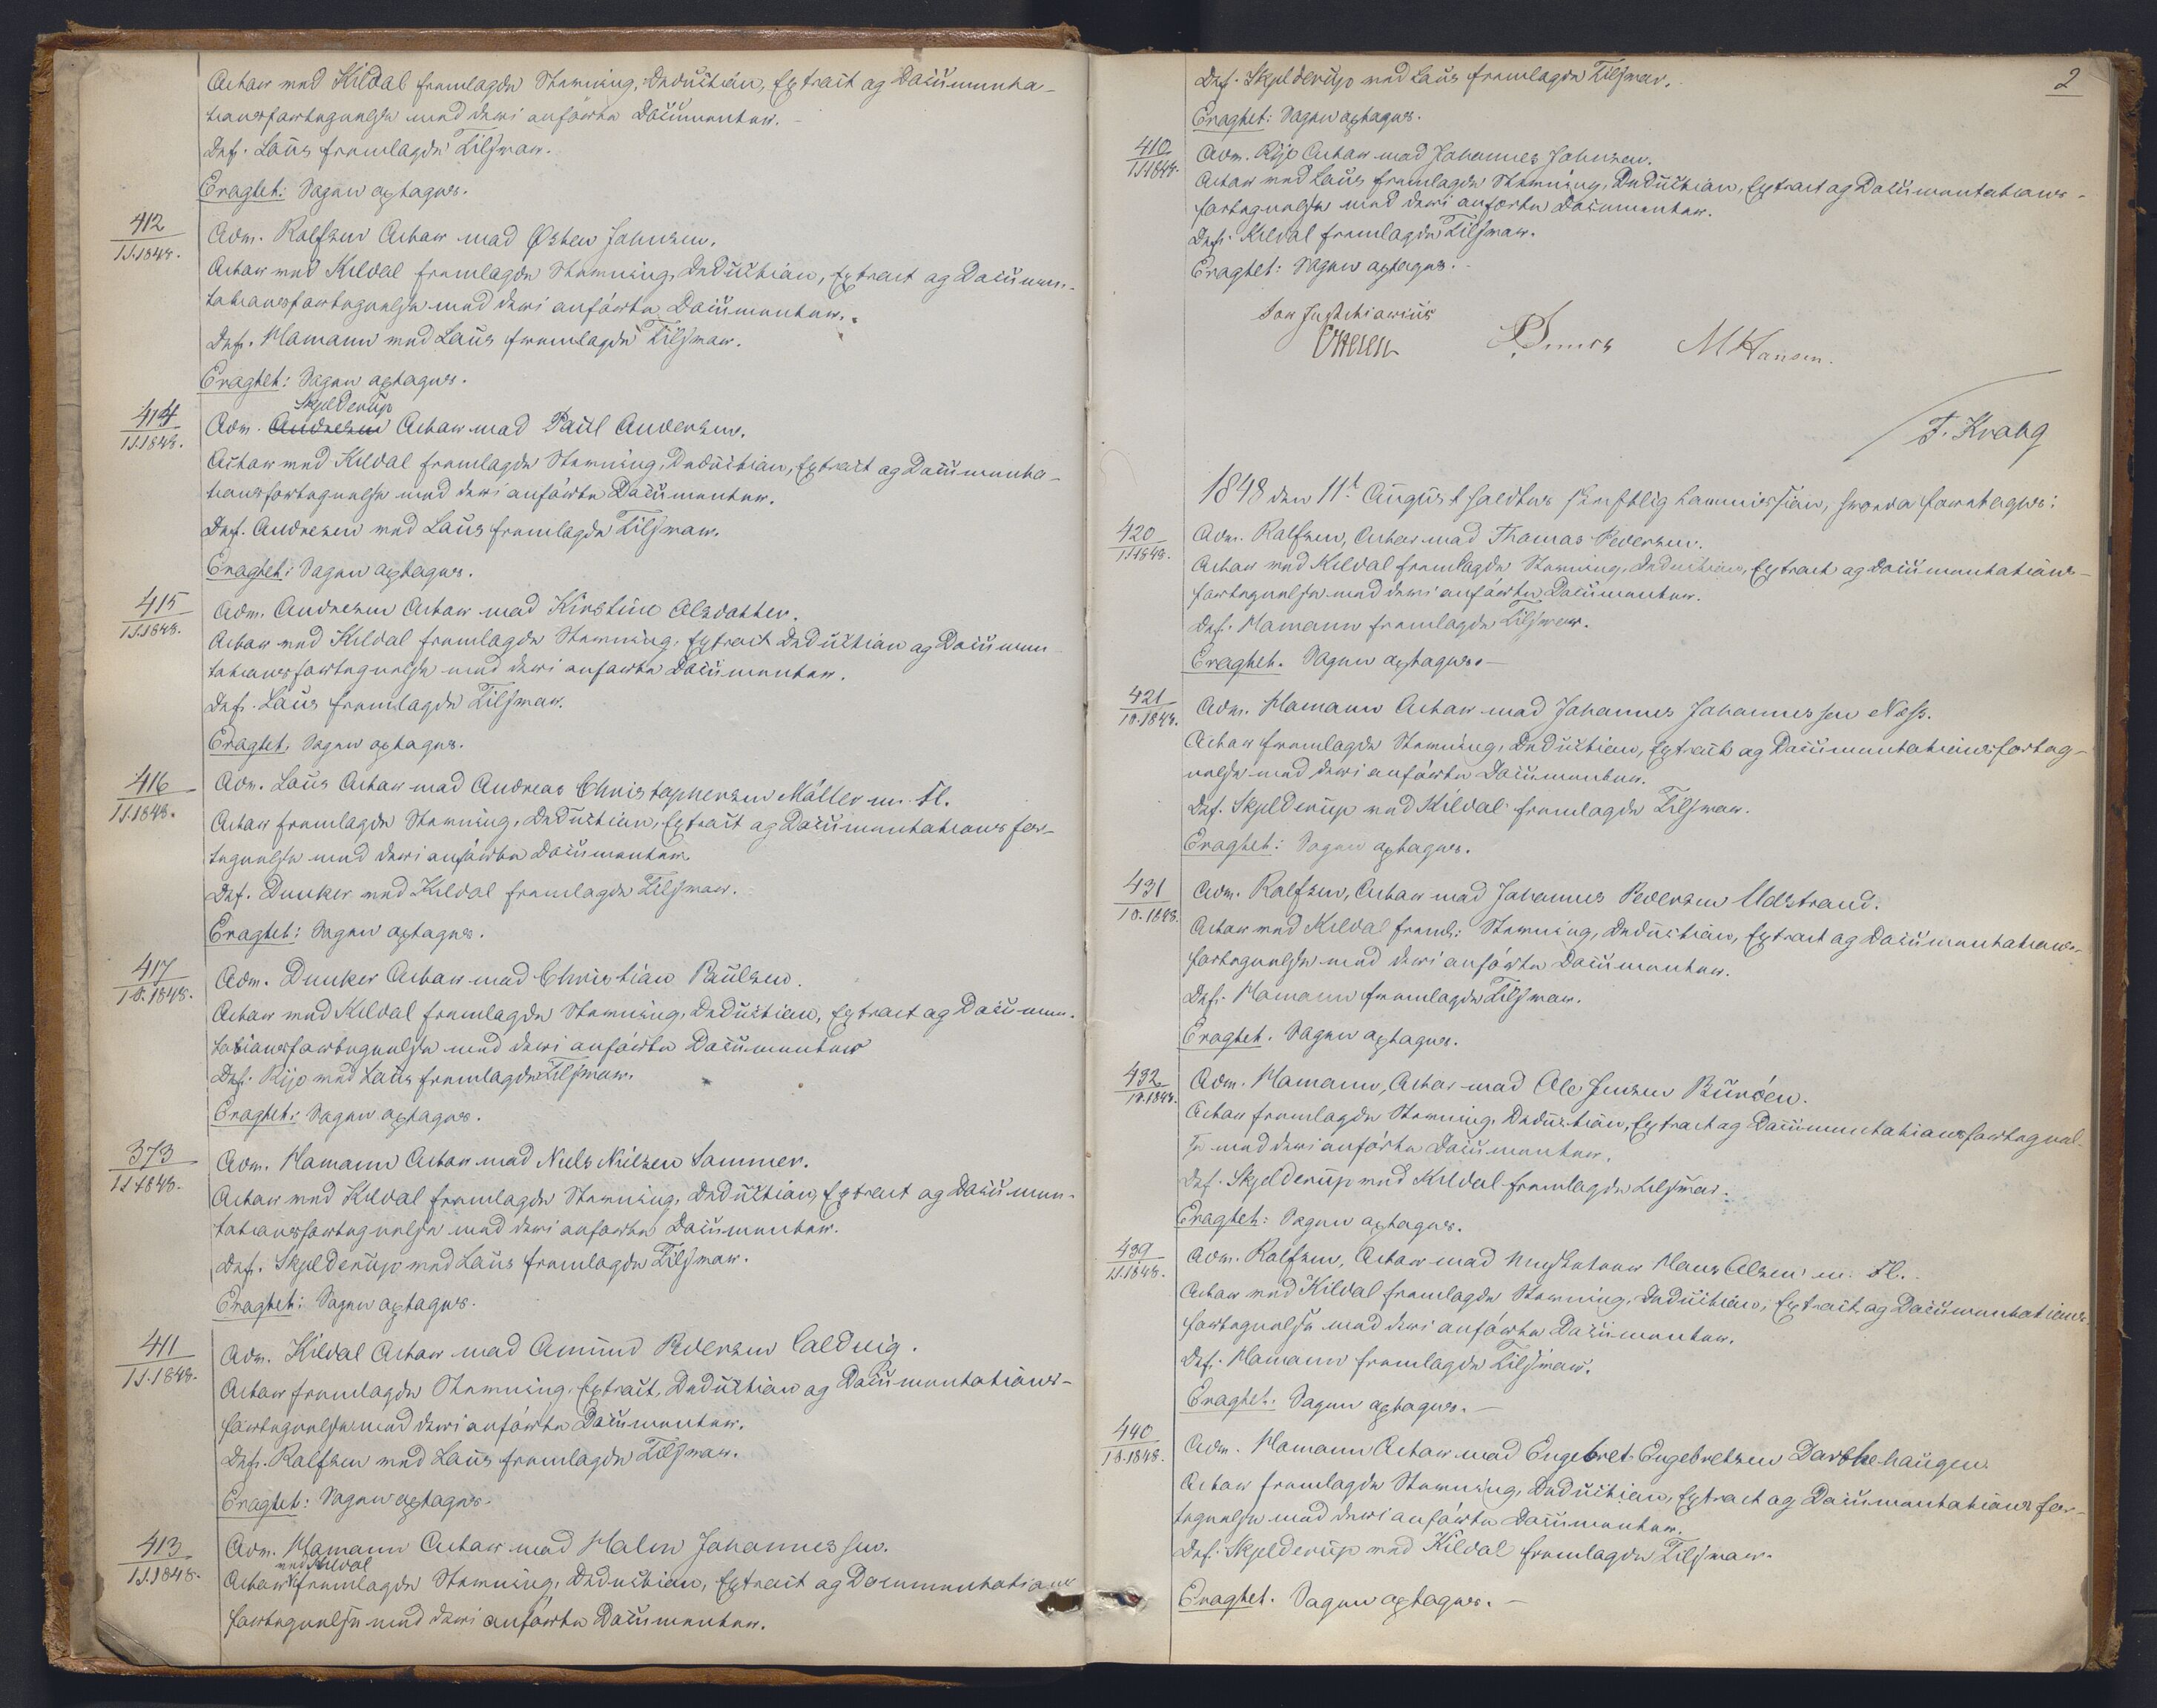 Actor med Kildal fremlagde Stævning, Deduction, Extract og Documenta-
tionsfortegnelse med deri anførte Documenter. -
Def. Laus fremlagde Tilsvar.
Eragtet: Sagen optages.
412
1 S. 1848.
Adv. Rolfsen Actor mod Østen Johnsen.
Actor med Kildal fremlagde Stævning, Deduction, Extract og Documen-
tationsfortegnelse med deri anførte Documenter.
Def. Hamann med Laus fremlagde Tilsvar.
Eragtet: Sagen optages.
Skjelderup
414
1 S. 1848.
Adv. Andresen Actor mod Paul Andersen.
Actor med Kildal fremlagde Stævning, Deduction, Extract og Documenta-
tionsfortegnelse med deri anførte Documenter.
Def. Andresen med Laus fremlagde Tilsvar.
Eragtet: Sagen optages.
415
1 S. 1848.
Adv. Andresen Actor mod Kirstine Olsdatter.
Actor med Kildal fremlagde Stævning, Extract Deduction og Documen-
tationsfortegnelse med deri anførte Documenter.
Def. Laus fremlagde Tilsvar.
Eragtet, Sagen optages.
416
1 S. 1848.
Adv. Laus Actor mod Andreas Christophersen Møller m. Fl.
Actor fremlagde Stævning, Deduction, Extract og Documentationsfor-
tegnelse med deri anførte Documenter.
Def. Dunker med Kildal fremlagde Tilsvar.
Eragtet: Sagen optages.
417
1 S. 1848.
Adv. Dunker Actor mod Christian Paulsen.
Actor med Kildal fremlagde Stævning, Deduction, Extract og Documen-
tationsfortegnelse med deri anførte Documenter
Def. Rije med Laus fremlagde Tilsvar.
Eragtet: Sagen optages.
373
1 S. 1848.
Adv. Hamann Actor mod Niels Nielsen Sommer.
Actor med Kildal fremlagde Stævning, Deduction, Extract og Documen-
tationsfortegnelse med deri anførte Documenter.
Def. Skjelderup med Laus fremlagde Tilsvar.
Eragtet: Sagen optages.
411
1 S. 1848.
Adv. Kildal Actor mod Amund Pedersen
Actor fremlagde Stævning, Extract, Deduction og Documentations-
fortegnelse med deri anførte Documenter.
Def. Rolfsen med Laus fremlagde Tilsvar.
Eragtet: Sagen optages.
413
1 S. 1848.
Adv. Hamann Actor mod Halvor Johannessen.
med Kildal
Actor fremlagde Stævning, Deduction, Extract og Documentations
fortegnelse med deri anførte Documenter.
2
Def. Skjelderup med Laus fremlagde Tilsvar.
Eragtet: Sagen optages.
410
1 S. 1848.
Adv. Rije Actor mod Johannes Johnsen.
Actor med Laus fremlagde Stævning, Deduction, Extract og Documentations-
fortegnelse med deri anførte Documenter.
Def. Kildal fremlagde Tilsvar.
Eragtet: Sagen optages. -
for Justitiarius
M Hansen.
F. Kraag
1848 den 11t August holdtes skriftlig Commission, hvorda foretoges:
420
1 S. 1848.
Adv. Rolfsen, Actor mod Thomas Pedersen.
Actor med Kildal fremlagde Stævning, Deduction, Extract og Documentations-
fortegnelse med deri anførte Documenter.
Def. Hamann fremlagde Tilsvar.
Eragtet. Sagen optages. -
421
1 S. 1848.
Adv. Hamann Actor mod Johannes Johannessen Næss.
Actor fremlagde Stævning, Deduction, Extract og Documentationsforteg-
nelse med deri anførte Documenter.
Def. Skjelderup med Kildal fremlagde Tilsvar.
Eragtet: Sagen optages.
431
1 S. 1848.
Adv. Rolfsen, Actor mod Johannes Pedersen Udstrand.
Actor med Kildal freml: Stævning, Deduction, Extract og Documentations-
fortegnelse med deri anførte Documenter.
Def. Hamann fremlagde Tilsvar.
Eragtet. Sagen optages.
432
1 S. 1848.
Adv. Hamann, Actor mod Ole Jensen Buroen.
Actor fremlagde Stævning, Deduction, Extract og Documentationsfortegnel-
se med deri anførte Documenter.
Def. Skjelderup med Kildal fremlagde Tilsvar.
Eragtet: Sagen optages.
439
1 S. 1848.
Adv. Rolfsen, Actor mod Hans Olsen m. Fl.
Actor med Kildal fremlagde Stævning, Deduction, Extract og Documentations
fortegnelse med deri anførte Documenter.
Def. Hamann fremlagde Tilsvar.
Eragtet. Sagen optages. -
440
1 S. 1848.
Adv. Hamann Actor mod Engebret Engebretsen
Actor fremlagde Stævning, Deduction, Extract og Documentationsfor-
tegnelse med deri anførte Documenter.
Def. Skjelderup med Kildal fremlagde Tilsvar.
Eragtet. Sagen optages. -